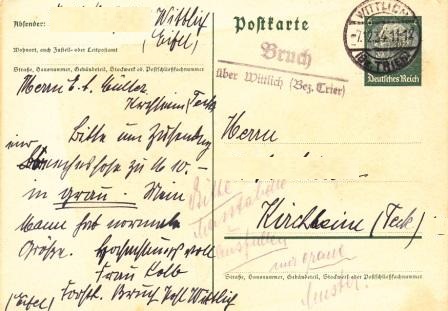 Absender:
Wittlich
(Eifel)
Wohnort, auch Zustell- oder Leitpostamt
Straße, Hausnummer, Gebäudeteil, Stockwerk od. Postschließfachnummer
Postkarte
WITTLICH
-7.12.34.11-12
(BZ. TRIER)
Deutsches Reich
Bruch
über Wittlich (Bez. Trier)
Herrn
Kirchheim (Teck)
Bitte um Zusendung
zu M 10.-
in grau. Mein
Mann hat normale
Größe. Hochachtungsvoll
Frau Kolb
Forsth. Bruch Post Wittlich
(Eifel)
Herrn
Kirchheim (Teck)
Straße, Hausnummer, Gebäudeteil, Stockwerk oder Postschließfachnummer
Bitte
ausfüllen
Muster.